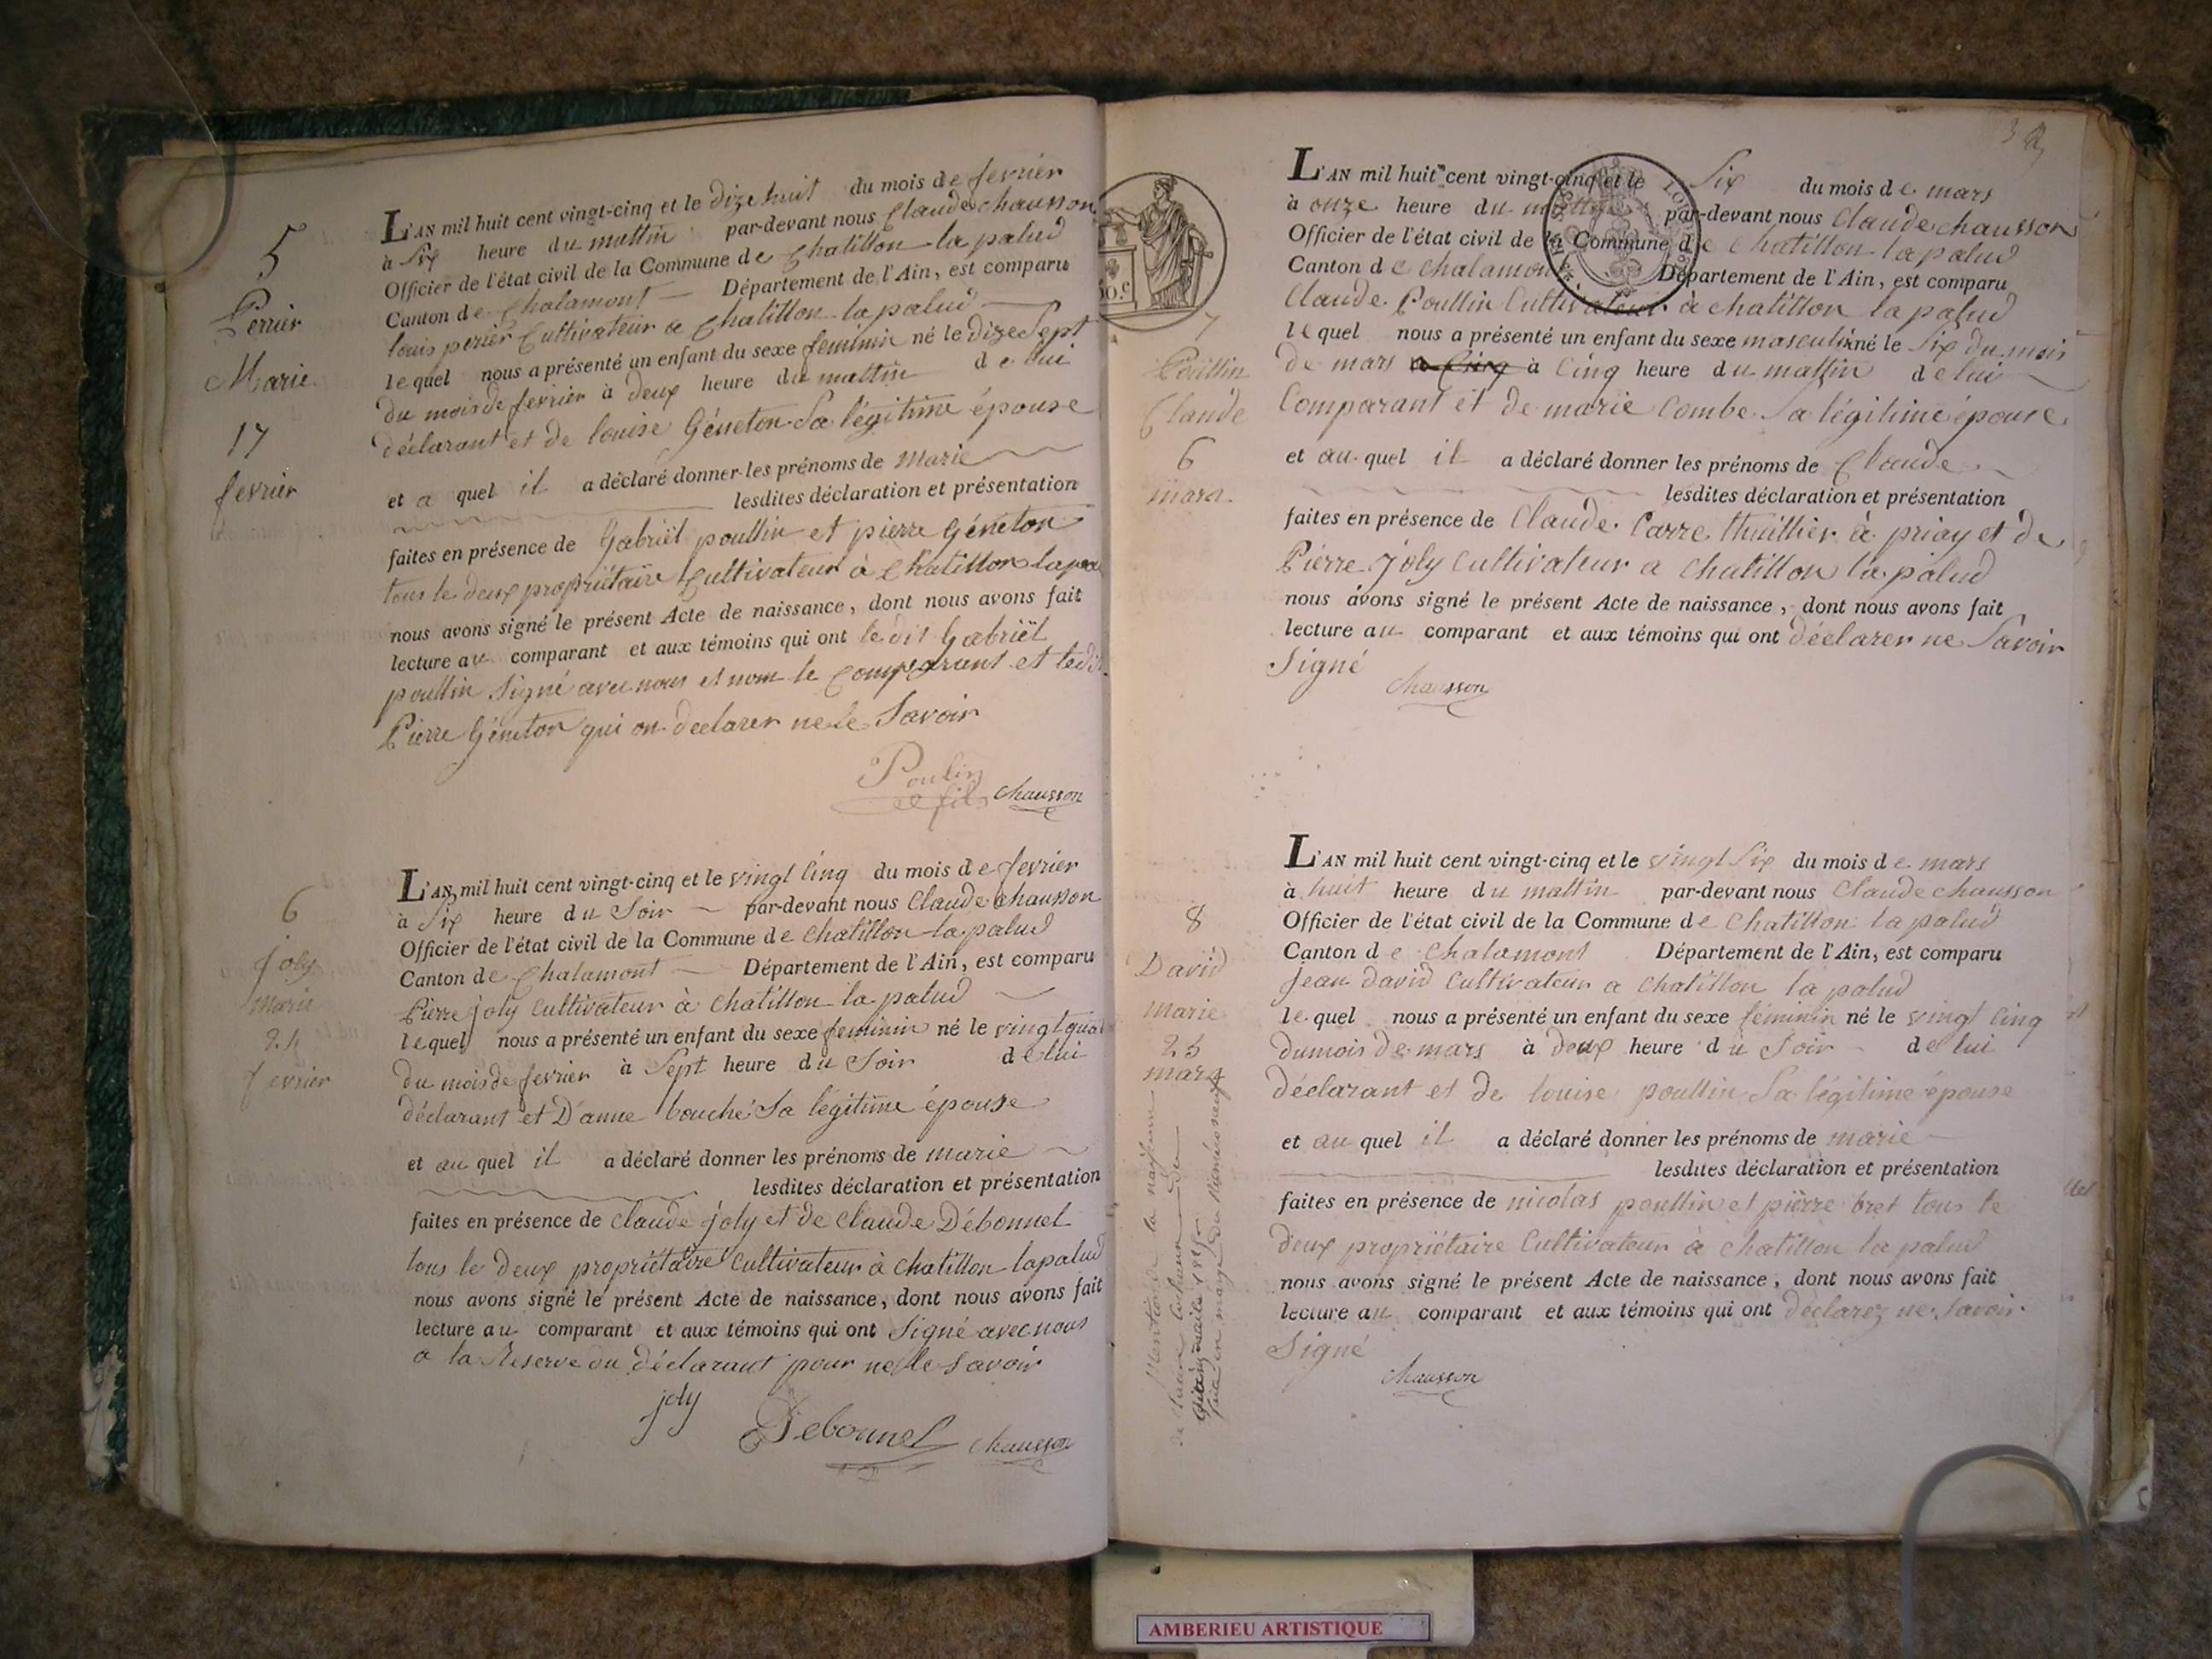 5
Perrier
Marie
17
fevrier
L'AN mil huit cent vingt-cinq et le dize huit du mois de fevrier
à Six heure du mattin par-devant nous Claude chausson
Officier de l'état civil de la Commune de Chatillon la palud
Canton de Chalamont Département de l'Ain, est comparu
louis perier Cultivateur a Chatillon la palud
lequel nous a présenté un enfant du sexe feminin né le dize Sept
du mois de fevrier à deux heure du mattin de lui
déclarant et de louise Géneton Sa légitime épouse
et a quel il a déclaré donner les prénoms de Marie
lesdites déclaration et présentation
faites en présence de Gabriël poullin et pierre Géneton
tous le deux propriétaire Cultivateur à Chatillon
nous avons signé le présent Acte de naissance, dont nous avons fait
lecture au comparant et aux témoins qui ont le dit Gabriël
poullin Signé avec nous et nom le Comparant et ledit
Pierre Géneton qui on declarer ne le Savoir
Poulin
fils chausson
6
joly
marie
24
fevrier
L'AN mil huit cent vingt-cinq et le vingt Cinq du mois de fevrier
à Six heure du Soir par-devant nous Claude chausson
Officier de l'état civil de la Commune de Chatillon la palud
Canton de Chalamont Département de l'Ain, est comparu
Pierre joly Cultivateur à Chatillon la palud
lequel nous a présenté un enfant du sexe feminin né le vingt quat
du mois de fevrier à Sept heure du Soir de lui
déclarant et D'anne bouché Sa légitime épouse
et au quel il a déclaré donner les prénoms de marie
lesdites déclaration et présentation
faites en présence de Claude joly et de Claude Débonnel
tous le deux propriétaire Cultivateur à Chatillon lapalud
nous avons signé le présent Acte de naissance, dont nous avons fait
lecture au comparant et aux témoins qui ont Signé avec nous
a la Reserve du déclarant pour ne le Savoir
joly
Debonnel chausson
7
Poullin
Claude
6
mars
L'AN mil huit cent vingt-cinq et le Six du mois de mars
à onze heure du mattin par-devant nous Claude chausson
Officier de l'état civil de la Commune de Chatillon la palud
Canton de Chalamont Département de l'Ain, est comparu
Claude Poullin Cultivateur à Chatillon la palud
lequel nous a présenté un enfant du sexe masculin né le Six du mois
de mars à Cinq heure du mattin de lui
Comparant et de marie Combe Sa légitime épouse
et au quel il a déclaré donner les prénoms de Claude
lesdites déclaration et présentation
faites en présence de Claude Carre thuillier à priay et de
Pierre joly Cultivateur a Chatillon la palud
nous avons signé le présent Acte de naissance, dont nous avons fait
lecture au comparant et aux témoins qui ont déclarer ne Savoir
Signé
Chausson
8
David
marie
25
mars
L'AN mil huit cent vingt-cinq et le vingt Six du mois de mars
à huit heure du mattin par-devant nous Claude chausson
Officier de l'état civil de la Commune de Chatillon la palud
Canton de Chalamont Département de l'Ain, est comparu
Jean David Cultivateur a Chatillon la palud
lequel nous a présenté un enfant du sexe féminin né le vingt Cinq
du mois de mars à deux heure du Soir de lui
déclarant et de louise poullin Sa légitime épouse
et au quel il a déclaré donner les prénoms de marie
lesdites déclaration et présentation
faites en présence de nicolas poullin et pierre bret tous le
deux propriétaire Cultivateur à Chatillon la palud
nous avons signé le présent Acte de naissance, dont nous avons fait
lecture au comparant et aux témoins qui ont déclarez ne Savoir
Signé
Chausson
AMBERIEU ARTISTIQUE